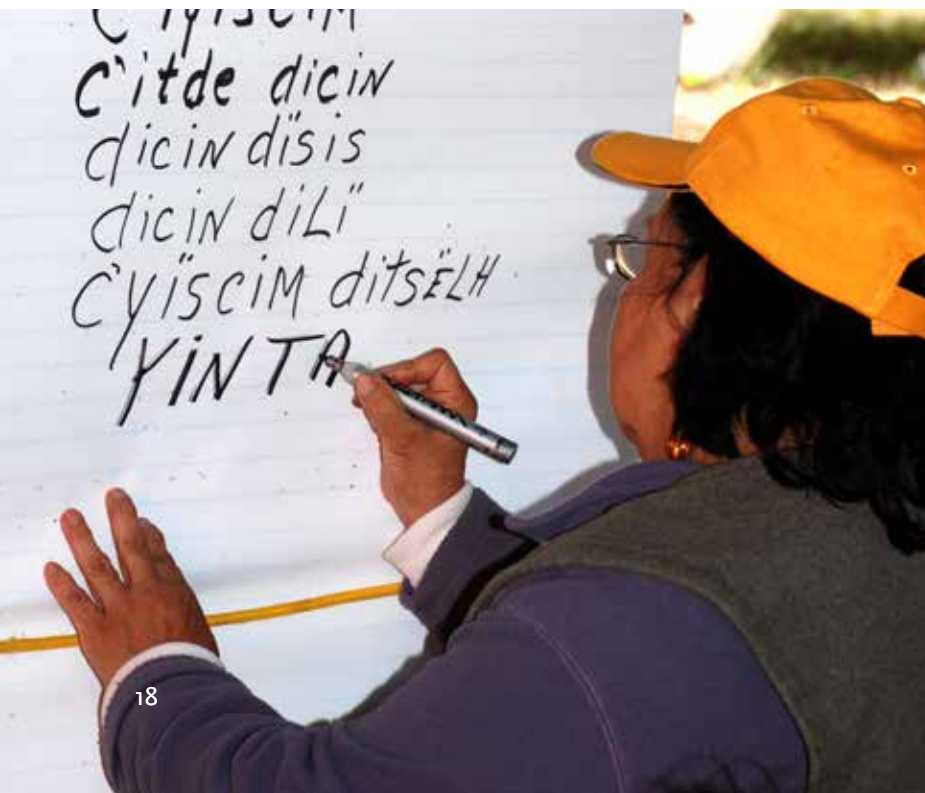 C'itde dicin
dicin dïsis
dicin diLï
C'yïSCiM ditsËLH
YiNTA
18